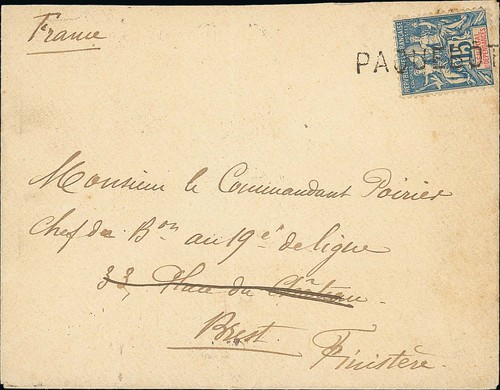 France
PAQUEBOT
RÉPUBLIQUE FRANÇAISE
15
Monsieur le Commandant Poirier
Chef de Bon au 19e de ligne
33, Place du Château.
Brest.
Finistère.